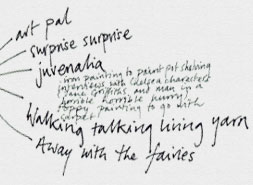 art pal
surprise surprise
juvenalia
iron painting to paint pot shelving
interviews with Chelsea characters
Jane Griffiths, and man in a
horrible horrible hurry
poppy painting to go with
carpet
Walking talking living yarn
Away with the fairies